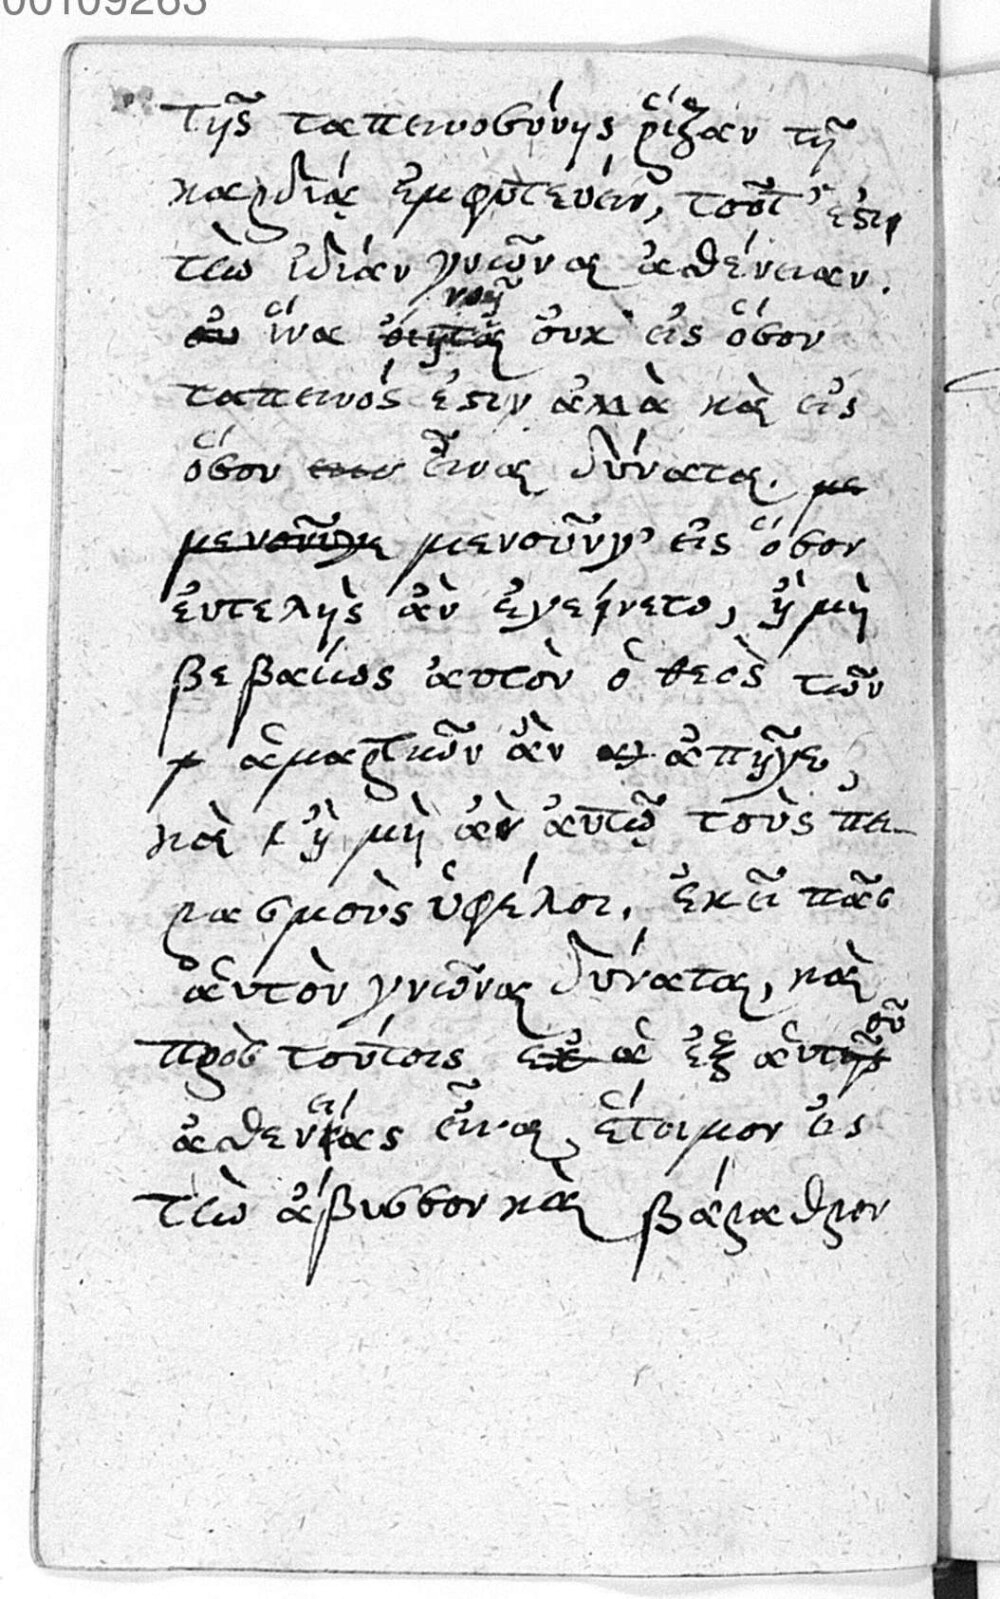 00109263
τῆς ταπεινοσύνης ῥίζαν τῇ
καρδίᾳ ἐμφυτεύειν, τοῦτ' ἐστιν
τὴν ἰδίαν γνῶναι ἀσθένειαν.
ἵνα νοῇ οὐκ εἰς ὅσον
ταπεινός ἐστιν ἀλλὰ καὶ εἰς
ὅσον εἶναι δύναται. με
μενοῦνγε μενοῦνγ' εἰς ὅσον
εὐτελὴς ἂν ἐγείνετο, ἢ μὴ
βεβαίως αὐτὸν ὁ θεὸς τῶν
ἁμαρτιῶν ἂν ἀπῆγε,
καὶ ἢ μὴ ἂν ἀυτῷ τοὺς πει-
ρασμοὺς ὑφέλοι. ἐκεῖ πᾶς
ἁυτὸν γνῶναι δύναται, καὶ
πρὸς τούτοις ἐξ ἁυτοῦ
ἀσθενείας εἶναι ἕτοιμον εἰς
τὴν ἄβυσσον καὶ βάραθρον